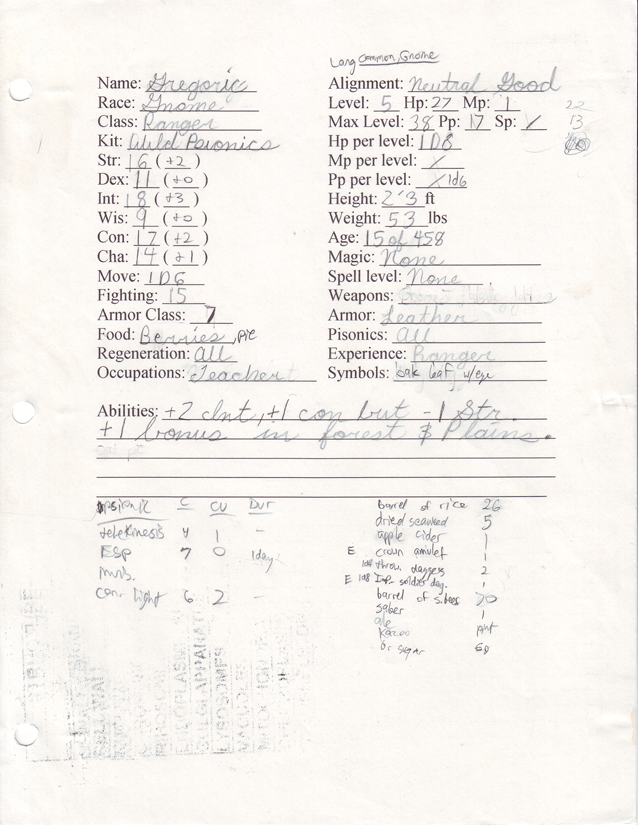 Lang Common, Gnome
Name: Gregoric Alignment: Neutral Good
Race: Gnome Level: 5 Hp: 27 Mp: 1 22
Class: Ranger Max Level: 38 Pp: 17 Sp: / 13
Kit: Wild Psionics Hp per level: 1D8
Str: 16 (+2) Mp per level: /
Dex: 11 (+0) Pp per level: / 1d6
Int: 18 (+3) Height: 2'3 ft
Wis: 9 (+0) Weight: 53 lbs
Con: 17 (+2) Age: 15 of 458
Cha: 14 (+1) Magic: None
Move: 1D6 Spell level: None
Fighting: 15 Weapons:
Armor Class: 7 Armor: Leather
Food: Berries, pie Pisonics: All
Regeneration: All Experience: Ranger
Occupations: Teacher Symbols: oak leaf w/eye
Abilities: +2 Int, +1 con but -1 Str.
+1 bonus in forest & Plains.
psionic C CU Dur barrel of rice 26
dried seaweed 5
telekinesis 4 1 - apple cider 1
ESP 7 0 1day E crown amulet 1
1d4 throw. daggers 2
invis. E 1d8 Imp. soldier dag. 1
cont light 6 2 - barrel of 20
saber 1
ale
kazoo
br sugar